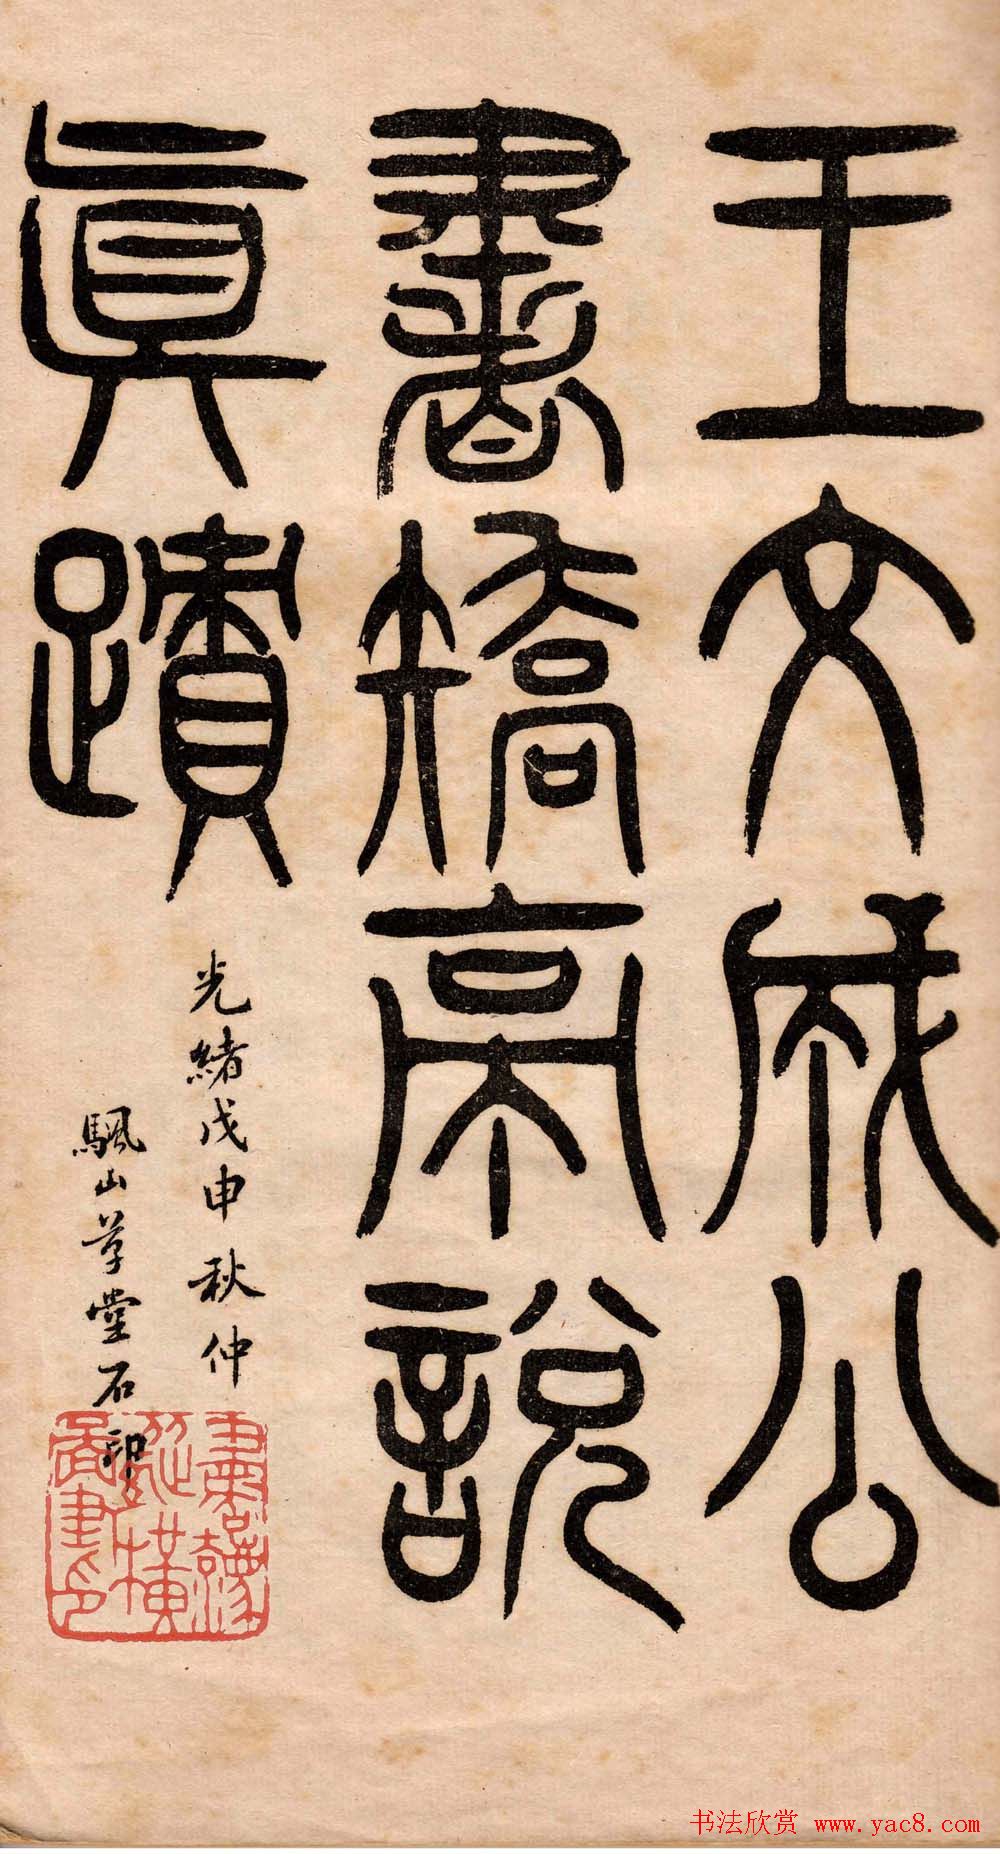 王文成公
書矯亭說
眞蹟
光緒戊申秋仲
颿山草堂石印
书法欣赏 www.yac8.com